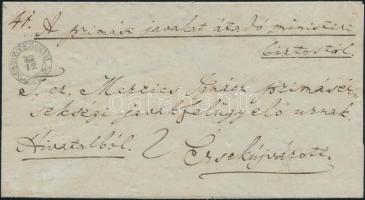 41. A primási javakat átadó ministeri
biztostól.
22
12
T. cz. Merzics Ignácz primásér-
sekségi javakfelügyelő urnak
Hivatalból. Érsekújvárott.